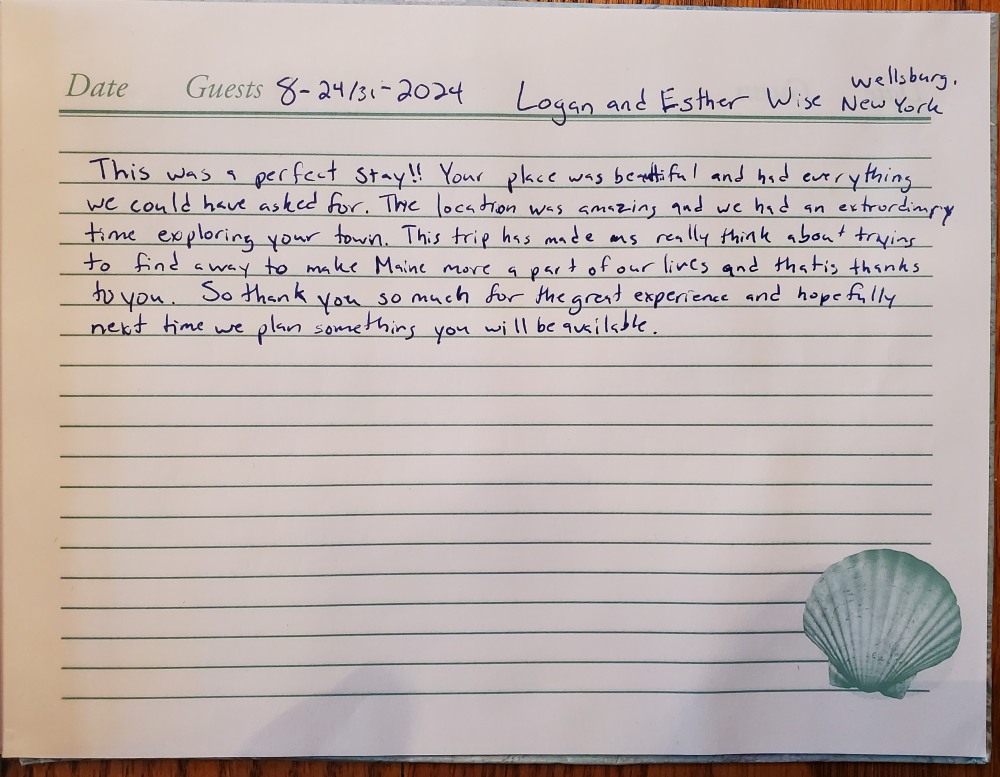 Wellsburg.
Date Guests 8-24/31-2024 Logan and Esther Wise New York
This was a perfect stay!! Your place was beautiful and had everything
we could have asked for. The location was amazing and we had an extrordinary
time exploring your town. This trip has made us really think about trying
to find away to make Maine more a part of our lives and thatis thanks
to you. So thank you so much for the great experience and hopefully
next time we plan something you will be available.